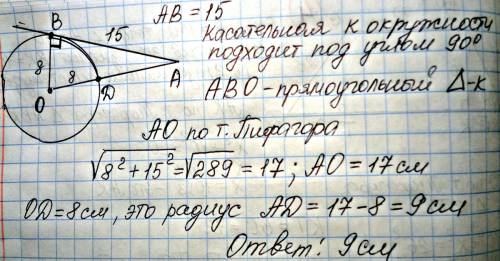 B
15
8
8
O
D
A
AB = 15
касательная к окружности
подходит под углом 90°
ABO - прямоугольный Δ-к
AO по т. Пифагора
√8² + 15² = √289 = 17; AO = 17 см
OD = 8 см, это радиус AD = 17 - 8 = 9 см
Ответ: 9 см